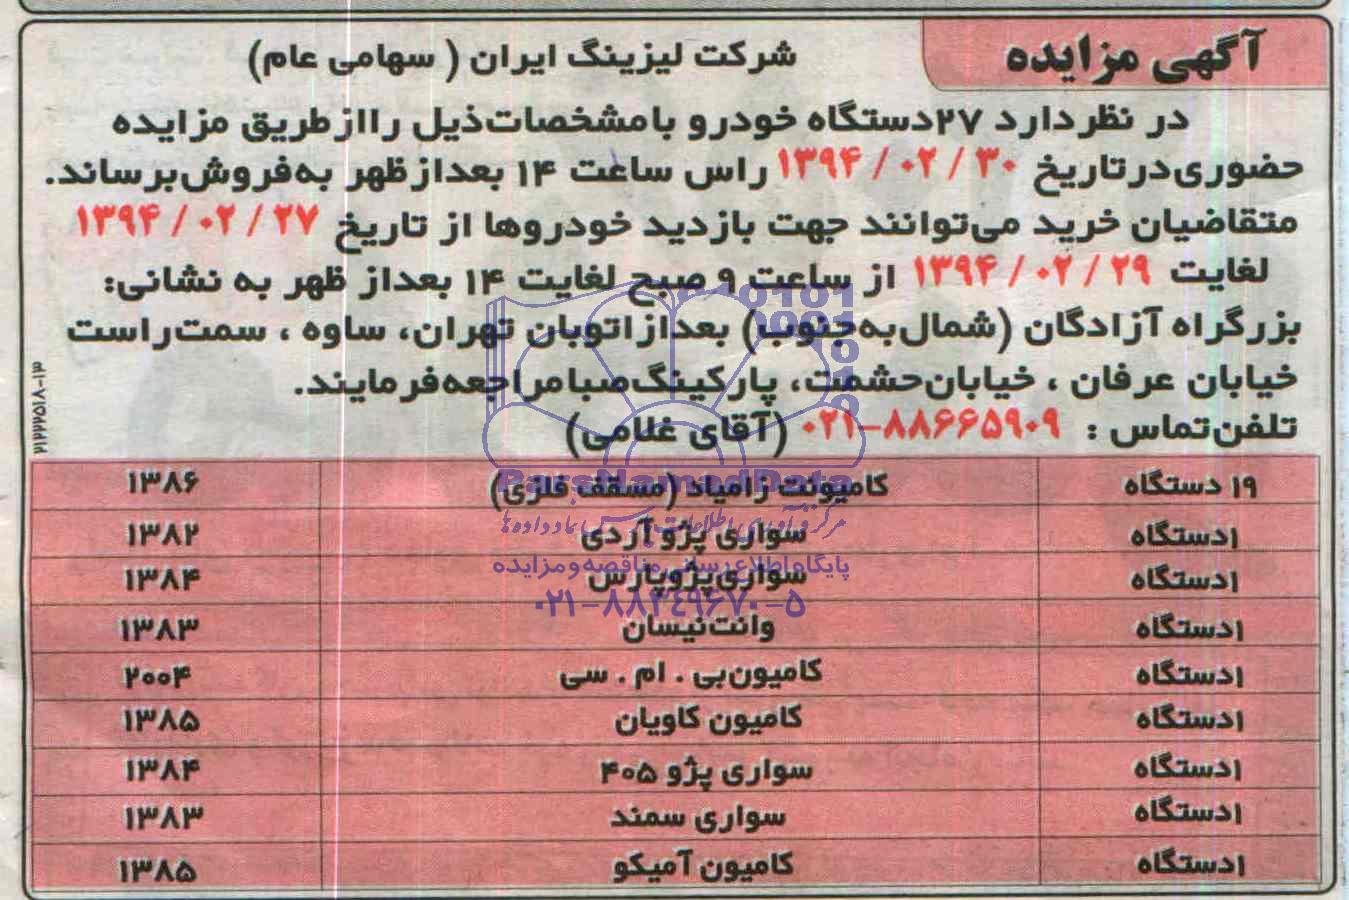 آگهی مزایده
شرکت لیزینگ ایران ( سهامی عام)
در نظر دارد ۲۷دستگاه خودرو بامشخصات‌ذیل رااز طریق مزایده
حضوری‌درتاریخ ۱۳۹۴/۰۲/۳۰ راس ساعت ۱۴ بعدازظهر به‌فروش‌برساند.
متقاضیان خرید می‌توانند جهت بازدید خودروها از تاریخ ۱۳۹۴/۰۲/۲۷
لغایت ۱۳۹۴/۰۲/۲۹ از ساعت ۹ صبح لغایت ۱۴ بعداز ظهر به نشانی:
بزرگراه آزادگان (شمال‌به‌جنوب) بعدازاتوبان تهران، ساوه ، سمت‌راست
خیابان عرفان ، خیابان‌حشمت، پارکینگ‌صبامراجعه‌فرمایند.
تلفن‌تماس : ۰۲۱-۸۸۶۶۵۹۰۹ (آقای غلامی)
۱۹ دستگاه کامیونت زامیاد (مسقف فلزی) ۱۳۸۶
۱دستگاه سواری پژو آردی ۱۳۸۲
۱دستگاه سواری‌پژوپارس ۱۳۸۴
۱دستگاه وانت‌نیسان ۱۳۸۳
۱دستگاه کامیون‌بی . ام . سی ۲۰۰۴
۱دستگاه کامیون کاویان ۱۳۸۵
۱دستگاه سواری پژو ۴۰۵ ۱۳۸۴
۱دستگاه سواری سمند ۱۳۸۳
۱دستگاه کامیون آمیکو ۱۳۸۵
ParsNamadData
پایگاه اطلاع رسانی مناقصه و مزایده
۰۲۱-۸۸۳۴۹۶۷۰-۵